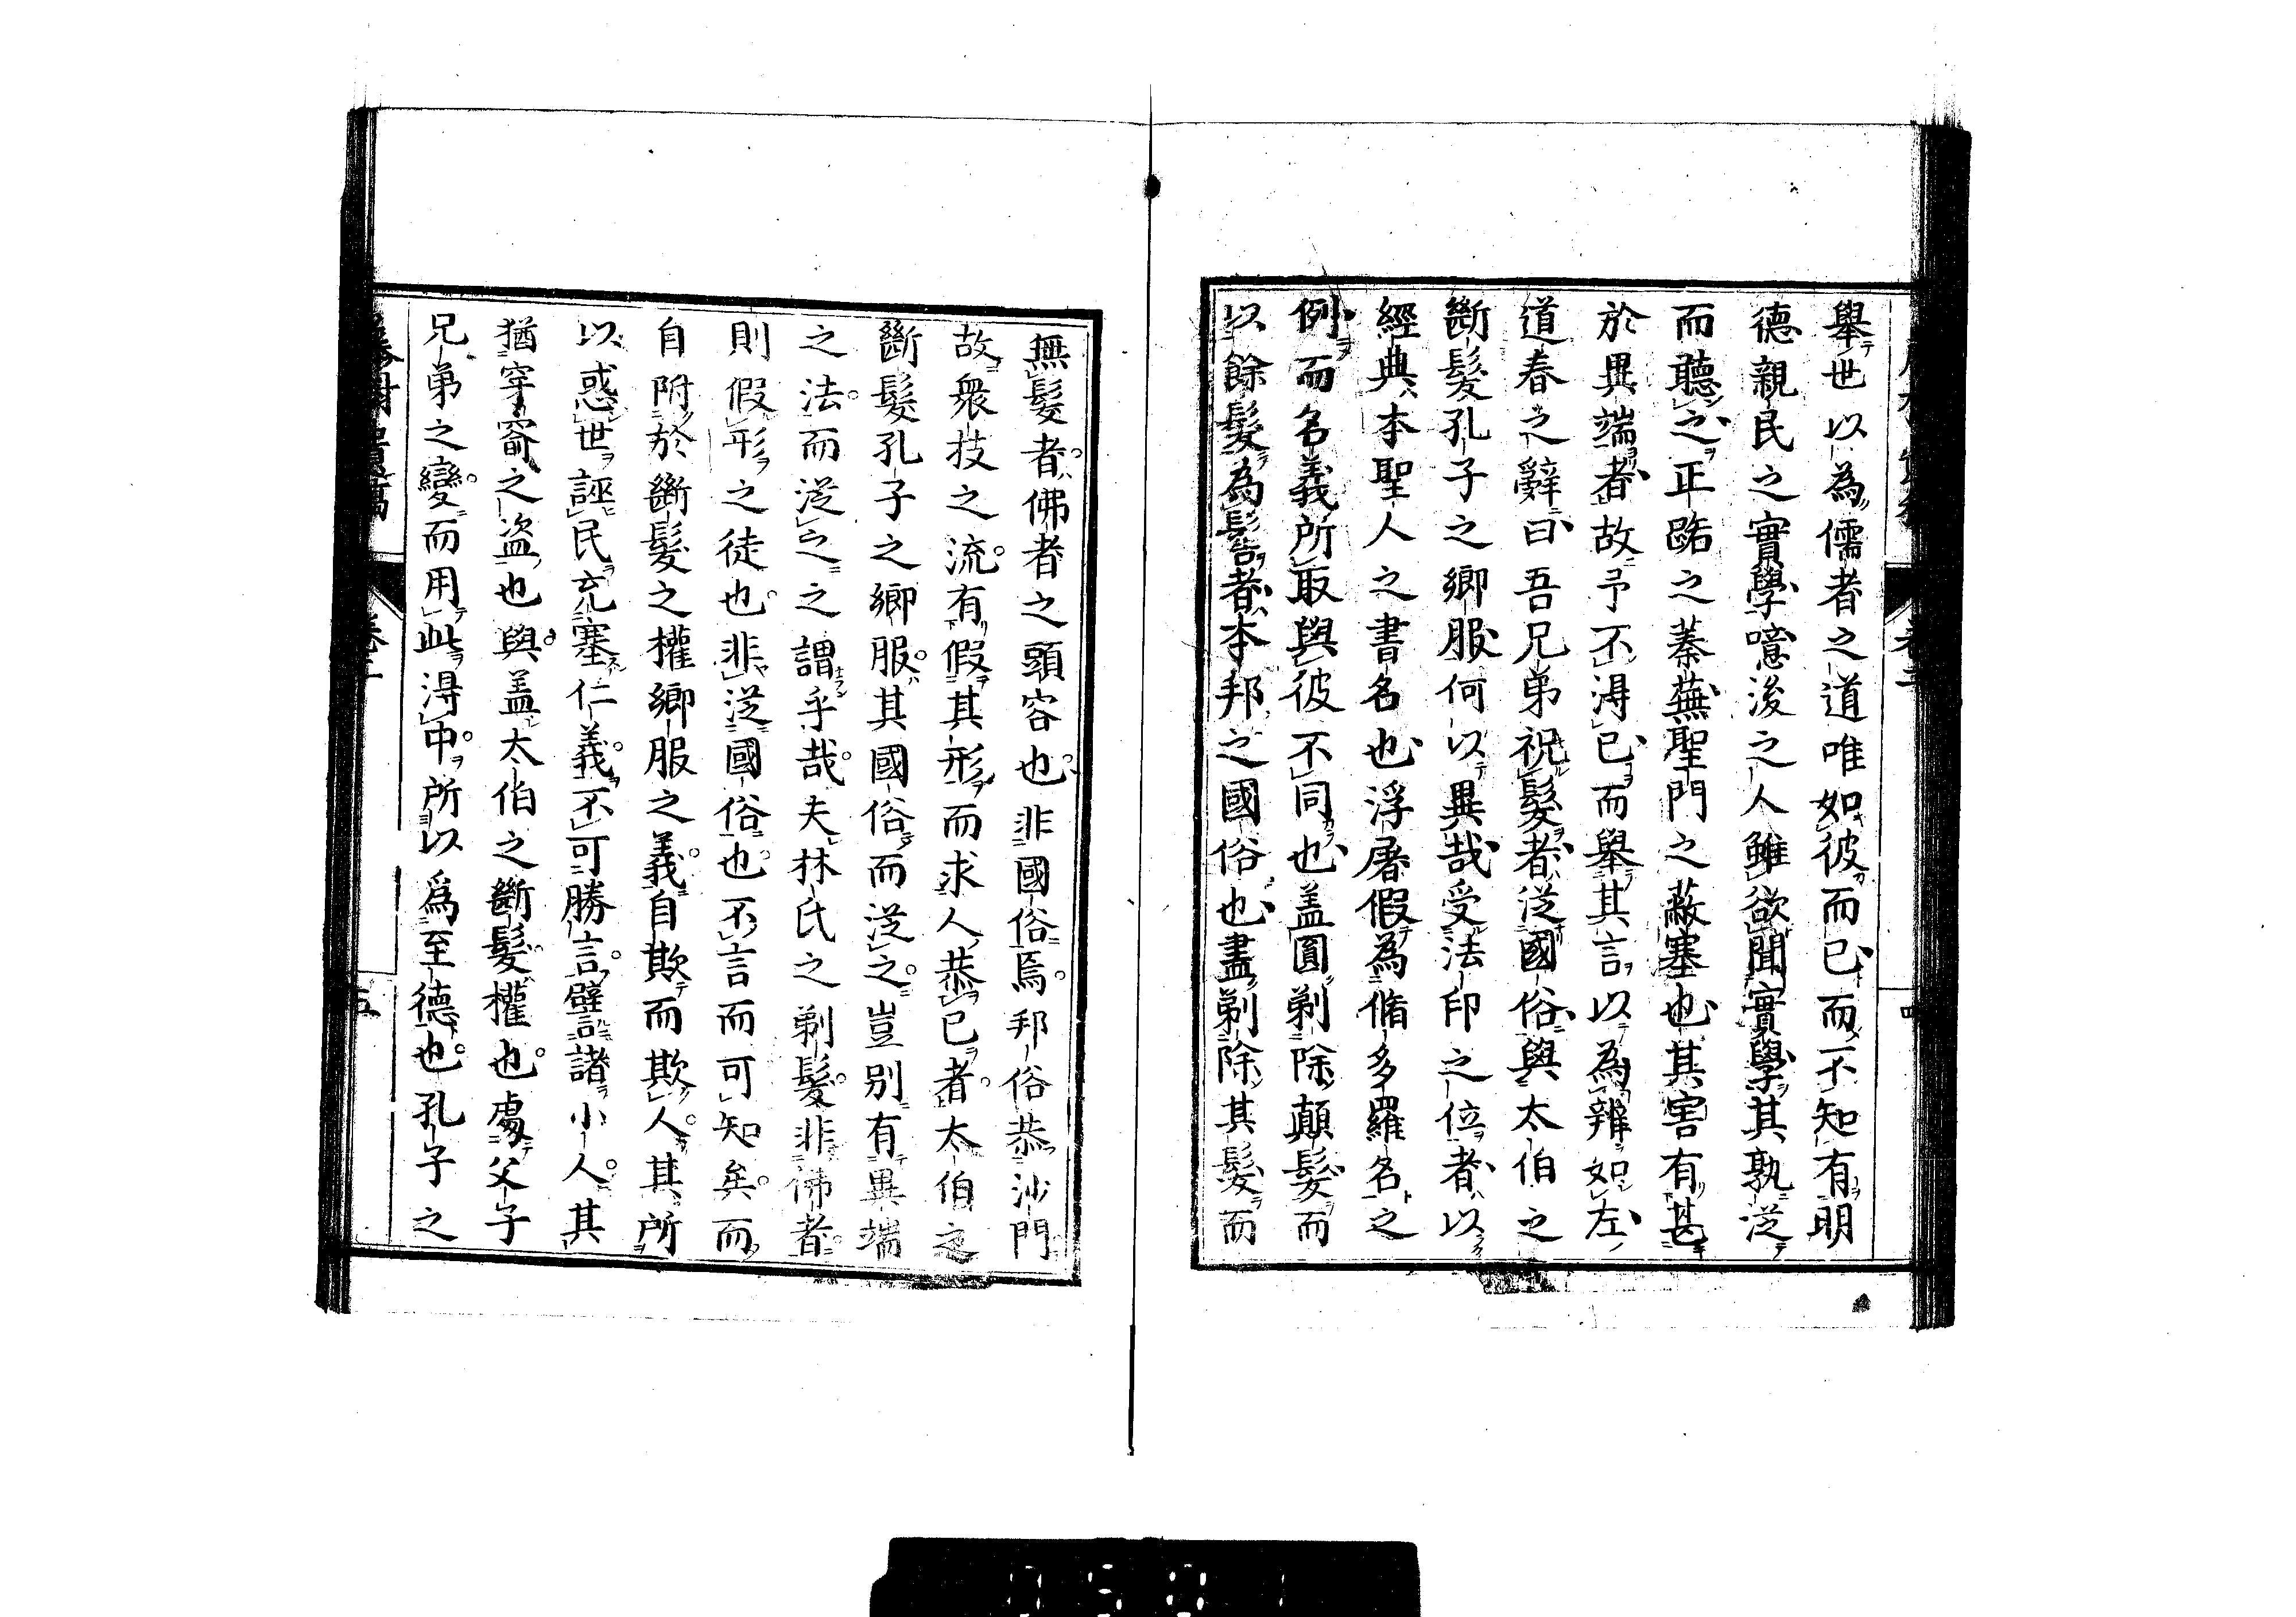 舉世以為儒者之道唯如彼而已而不知有明
德親民之實學噫後之人雖欲聞實學其孰從
而聽之正路之蓁蕪聖門之蔽塞也其害有甚
於異端者故予不得已而舉其言以為辨如左
道春之辭曰吾兄弟祝髮者從國俗與太伯之
斷髮孔子之鄉服何以異哉受法印之位者以
經典本聖人之書名也浮屠假為脩多羅名之
例而名義所取與彼不同也盖圓剃除顛髮而
以餘髮為髻者本邦之國俗也盡剃除其髮而
無髮者佛者之頭容也非國俗焉邦俗恭沙門
故衆技之流有假其形而求人恭已者太伯之
斷髮孔子之鄉服其國俗而從之豈別有異端
之法而從之之謂乎哉夫林氏之剃髮非佛者
則假形之徒也非從國俗也不言而可知矣而
自附於斷髮之權鄉服之義自欺而欺人其所
以惑世誣民充塞仁義不可勝言譬諸小人其
猶穿窬之盗也與盖太伯之斷髮權也處父子
兄弟之變而用此得中所以爲至德也孔子之